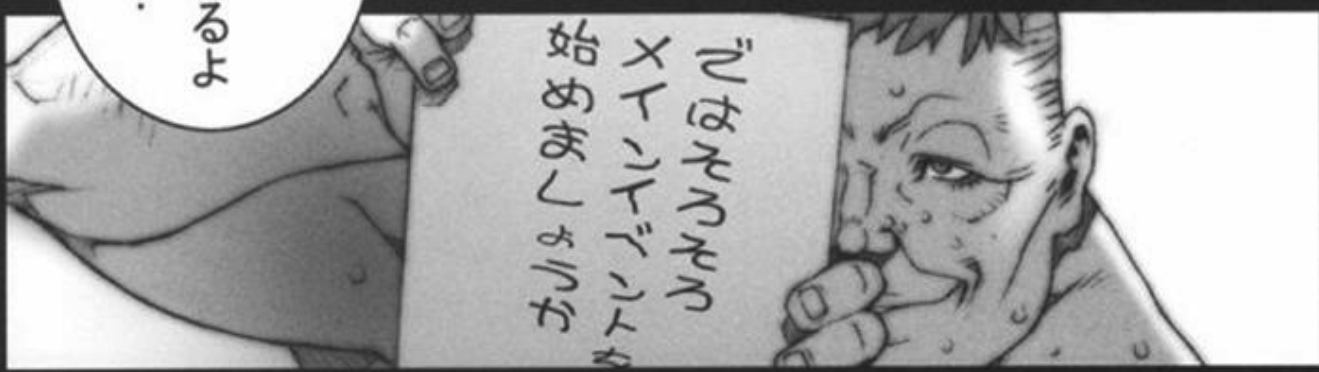 ではそろそろ
メインイベントを
始めましょうか
るよ